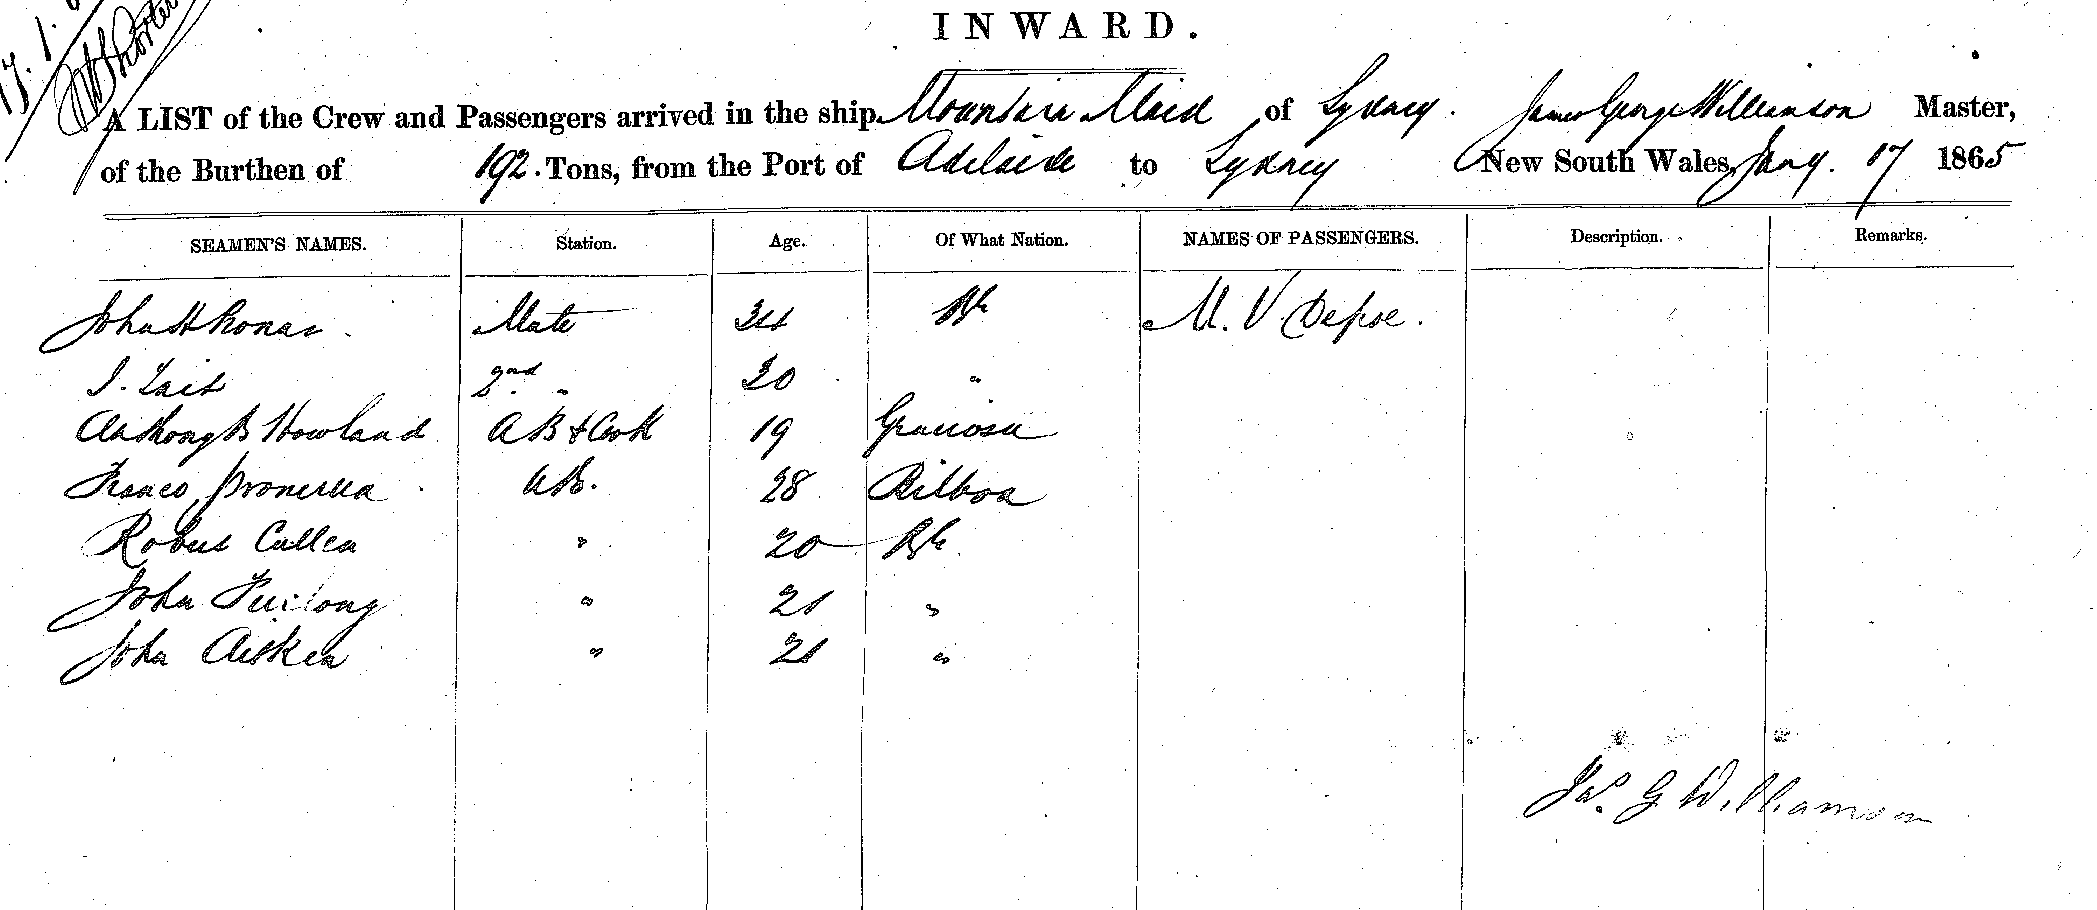 17. 1.
INWARD.
A LIST of the Crew and Passengers arrived in the ship Mountain Maid of Sydney. James George Williamson Master,
of the Burthen of 192. Tons, from the Port of Adelaide to Sydney New South Wales, Jany. 17 1865
SEAMEN'S NAMES. Station. Age. Of What Nation. NAMES OF PASSENGERS. Description. Remarks.
John H Ronan Mate 34 Bh M. V Depoe.
J. Tait 2nd " 20 "
Anthony B Howland A B & Cook 19 Graciosa
Franco AB. 28 Bilboa
Robert Cullen " 20 Bh.
John Furlong " 21 "
John Aisken " 21 "
Jas. G Williamson